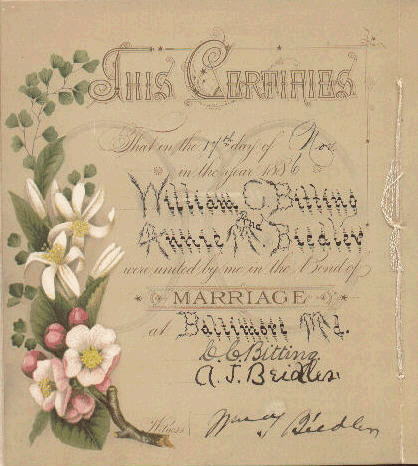 This Certifies
That on the 17th day of Nov.
in the year 1886
William C. Bitting
and
Annie M. Biedler
were united by me in the Bond of
MARRIAGE
at Baltimore Md.
C. C. Bitting
A. J. Beidler
Witness Biedler